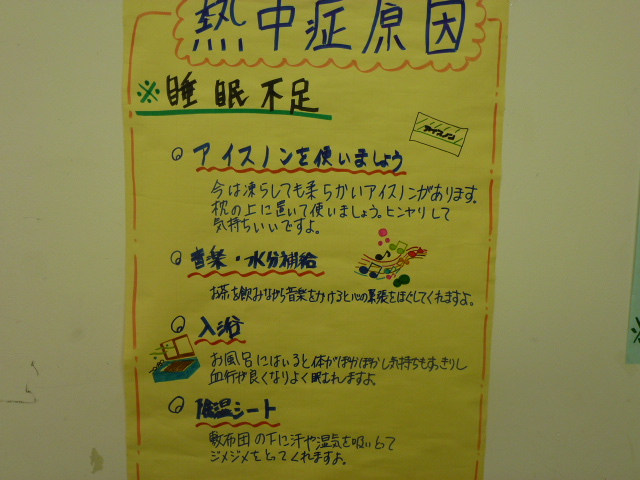 熱中症原因
※睡眠不足
アイスノン
アイスノンを使いましょう
今は凍らしても柔らかいアイスノンがあります。
枕の上に置いて使いましょう。ヒンヤリして
気持ちいいですよ。
音楽・水分補給
お茶を飲みながら音楽をかけると心の緊張をほぐしてくれますよ。
入浴
お風呂にはいると体がぽかぽかし気持ちもすっきりし
血行が良くなりよく眠れますよ
除湿シート
敷布団の下に汗や湿気を吸いって
ジメジメをとってくれますよ。
※